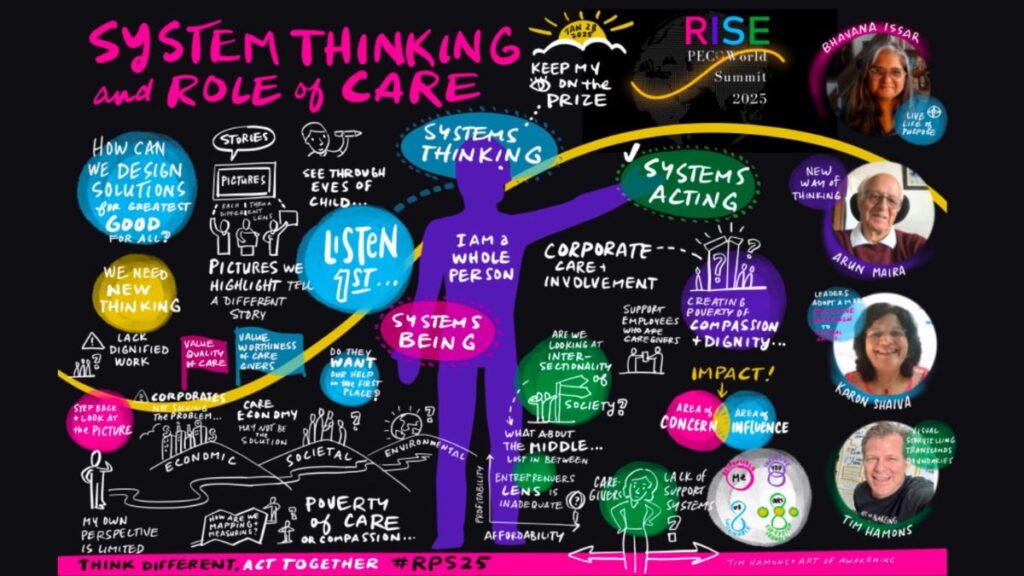 SYSTEM THINKING
and ROLE of CARE
JAN 28
2025
KEEP MY
ON the
PRIZE
RISE
PECOWorld
Summit
2025
BHAVANA ISSAR
LIVE
LIFE of
PURPOSE
HOW CAN
WE DESIGN
SOLUTIONS
for GREATEST
GOOD
FOR ALL?
STORIES
PICTURES
EACH
DIFFERENT
LENS
PICTURES WE
HIGHLIGHT TELL
A DIFFERENT
STORY
SEE THROUGH
EYES OF
CHILD...
SYSTEMS
THINKING
SYSTEMS
ACTING
NEW
WAY of
THINKING
ARUN MAIRA
LISTEN
1ST...
I AM a
WHOLE
PERSON
CORPORATE
CARE +
INVOLVEMENT
CREATING
POVERTY OF
COMPASSION
+ DIGNITY...
WE NEED
NEW
THINKING
SYSTEMS
BEING
LACK
DIGNIFIED
WORK
VALUE
QUALITY
of CARE
VALUE
WORTHINESS
OF CARE
GIVERS
DO THEY
WANT
OUR HELP
in the FIRST
PLACE?
ARE WE
LOOKING AT
INTER-
SECTIONALITY
OF
SOCIETY?
SUPPORT
EMPLOYEES
WHO ARE
CAREGIVERS
LEADERS
ADOPT A
TO
KARON SHAIVA
IMPACT!
AREA of
CONCERN
AREA of
INFLUENCE
STEP BACK
+ LOOK AT
the PICTURE
CORPORATES
NOT SOLVING
THE PROBLEM...
CARE
ECONOMY
MAY NOT BE
THE SOLUTION
ECONOMIC
SOCIETAL
ENVIRONMENTAL
WHAT ABOUT
THE MIDDLE...
LOST IN BETWEEN
ENTREPRENUERS
LENS IS
INADEQUATE
PROFITABILITY
AFFORDABILITY
CARE-
GIVERS
LACK OF
SUPPORT
SYSTEMS
ME
YOU
US
VISUAL
STORYTELLING
TRANSCENDS
BOUNDARIES
TIM HAMONS
MY OWN
PERSPECTIVE
IS LIMITED
HOW ARE WE
MAPPING +
MEASURING?
POVERTY
of CARE
or COMPASSION...
THINK DIFFERENT, ACT TOGETHER #RPS25
TIM HAMONS • ART OF AWAKENING